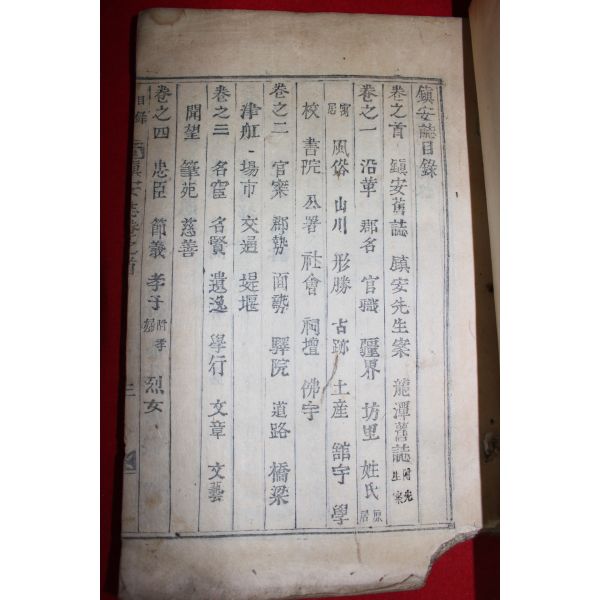 鎮安誌目錄
卷之首 鎮安舊誌 鎮安先生案 龍潭舊誌 附先生案
卷之一 沿革 郡名 官職 疆界 坊里 姓氏 原居
寓居 風俗 山川 形勝 古跡 土産 館宇 學
校 書院 公署 社會 祠壇 佛宇
卷之二 官案 郡勢 面勢 驛院 道路 橋梁
津舡 場市 交通 堤堰
卷之三 名宦 名賢 遺逸 學行 文章 文藝
聞望 筆苑 慈善
卷之四 忠臣 節義 孝子 附孝婦 烈女
目錄 鎮安誌卷之首 二